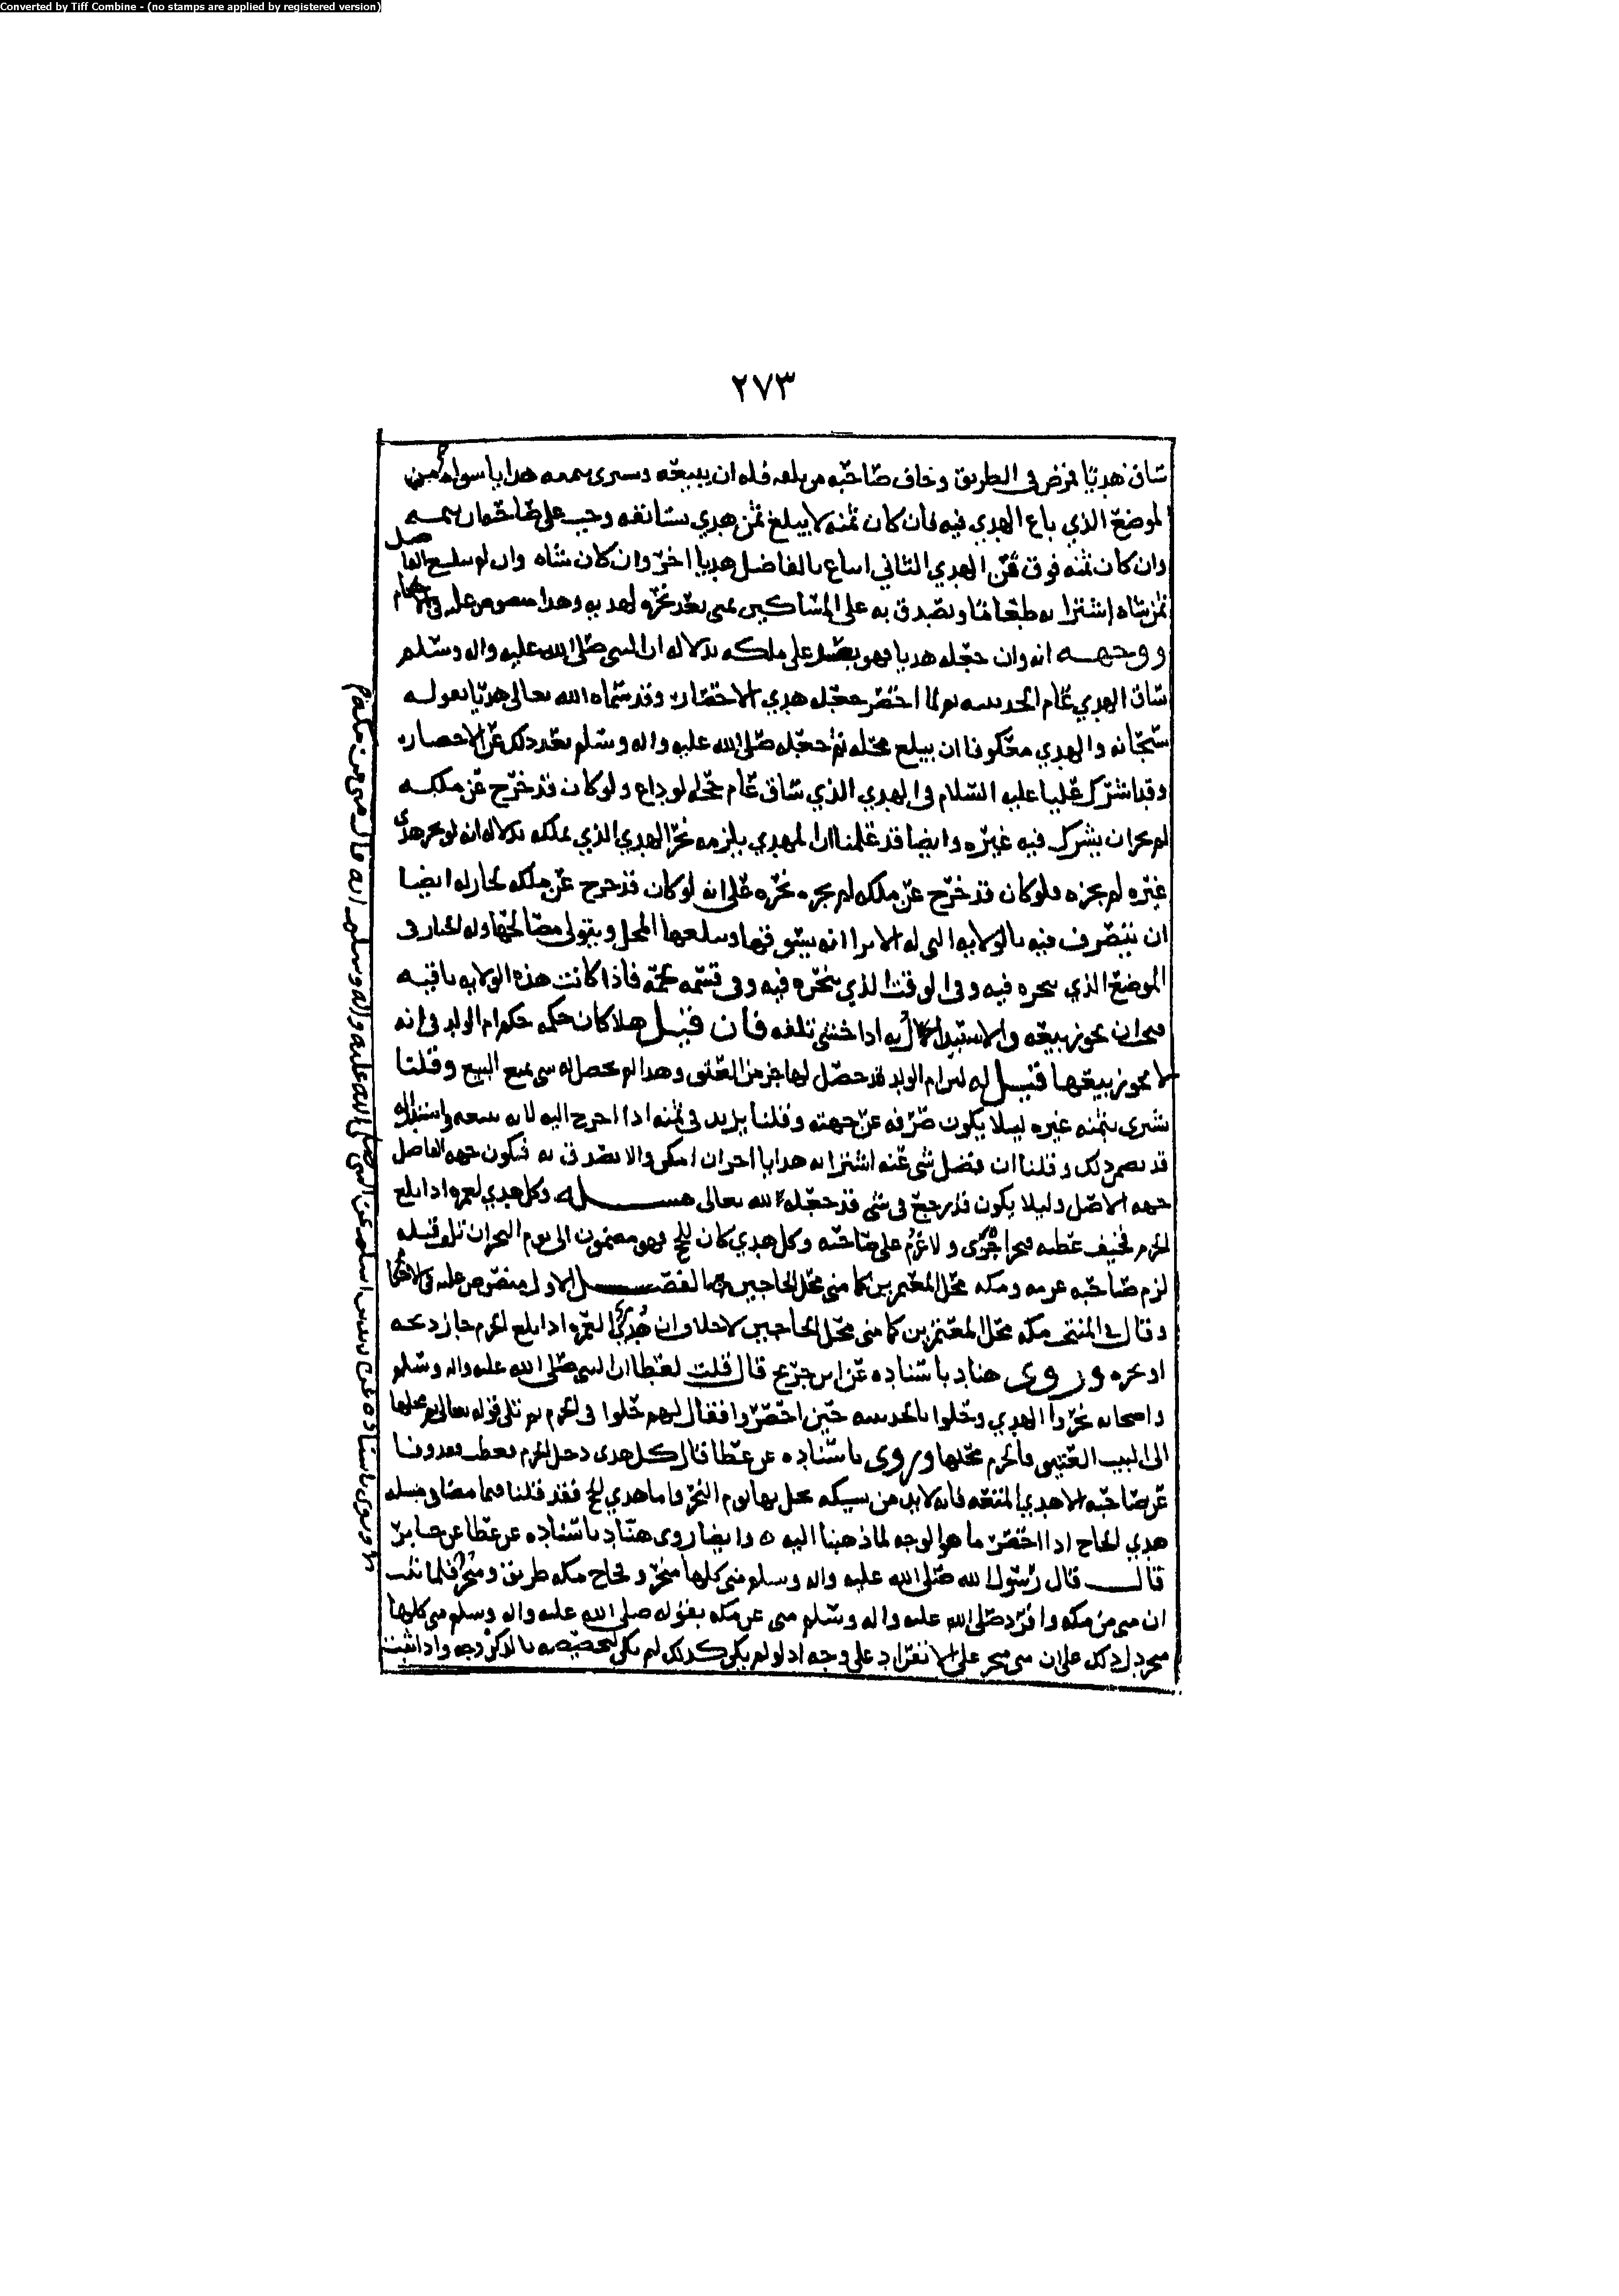 Converted by Tiff Combine - (no stamps are applied by registered version)
٢٧٣
ساق هديا فمرض في الطريق وخاف صاحبه من تلفه فله ان يبيعه ويسري بثمنه هديا سواه من
الموضع الذي باع الهدي فيه فان كان ثمنه لا يبلغ ثمن هدي يستانفه وجب على صاحبه ان يتمه
وان كان ثمنه فوق ثمن الهدي الثاني ابتاع بالفاضل هديا اخر وان كان شاه وان لم يبلغ الفاضل
ثمن شاه اشترا به طعاما وتصدق به على المساكين بمنى بعد نحره لهديه وهذا منصوص عليه في الاحكام
ووجهه انه وان جعله هديا فهو بعد على ملكه بدلاله ان النبي صلى الله عليه واله وسلم
ساق الهدي عام الحديبيه ثم لما احصر جعله هدي الاحصار وقد سماه الله تعالى هديا بقوله
سبحانه والهدي معكوفا ان يبلغ محله ثم جعله صلى الله عليه واله وسلم بعد ذلك عن الاحصار
وقد اشرك عليا عليه السلام في الهدي الذي ساق عام حجه الوداع ولو كان قد خرج عن ملكه
لم يجز ان يشرك فيه غيره وايضا قد علمنا ان المهدي يلزمه نحر الهدي الذي يملكه بدلاله انه لو نحر هدي
غيره لم يجزه فلو كان قد خرج عن ملكه لم يجزه نحره على انه لو كان قد خرج عن ملكه لجاز له ايضا
ان يتصرف فيه بالولايه التي له الا ترا انه يسوقها ويبلغها المحل ويتولى مصالحها وله الخيار في
الموضع الذي ينحره فيه وفي الوقت الذي ينحره فيه وفي قسمه لحمه فاذا كانت هذه الولايه باقيه
فيجب ان يجوز بيعه والاستبدال به اذا خشي تلفه فان قيل هلا كان حكمه حكم ام الولد في انه
لا يجوز بيعها قيل له ان ام الولد قد حصل لها جز من العتق وهذا لم يحصل له شي يمنع البيع وقلنا
يشري بثمنه غيره ليلا يكون صرفه عن جهته وقلنا يزيد في ثمنه اذا احوج اليه لانه ببيعه واستبداله
قد تضمن ذلك وقلنا ان فضل شي عنه اشترا به هديا اخر ان امكن والا تصدق به فيكون جهه الفاضل
جهه الاصل وليلا يكون قد رجع في شي قد جعله لله تعالى مسله وكل هدي لعمره اذا بلغ
الحرم فخيف عطبه فنحر اجزى ولا غرم على صاحبه وكل هدي كان للحج فهو مضمون الى يوم النحر ان تلف قبله
لزم صاحبه غرمه ومكه محل المعتمرين كما منى محل الحاجين الفصل الاول منصوص عليه في الاحكام
وقال في المنتخب مكه محل المعتمرين كما منى محل الحاجين لا خلاف ان هدي العمره اذا بلغ الحرم جاز ذبحه
او نحره وروى هناد باسناده عن ابن جريج قال قلت لعطا ان النبي صلى الله عليه واله وسلم
واصحابه نحروا الهدي وحلوا بالحديبيه حين احصروا فقال لهم حلوا في الحرم ثم تلى قوله تعالى ثم محلها
الى البيت العتيق فالحرم محلها وروى باسناده عن عطا قال كل هدي دخل الحرم فعطب فقد وفا
عن صاحبه الا هدي المتعه فانه لا بد من نسيكه يحل بها يوم النحر واما هدي الحج فقد قلنا فيما مضى في مسله
هدي الحاج اذا احصر ما هو الوجه لما ذهبنا اليه ٥ وايضا روى هناد باسناده عن عطا عن جابر
قال قال رسول الله صلى الله عليه واله وسلم منى كلها منحر وفجاج مكه طريق ومنحر فلما ثبت
ان منى من مكه وافرد صلى الله عليه واله وسلم منى عن مكه بقوله صلى الله عليه واله وسلم منى كلها
منحر دل ذلك على ان منى منحر على الانفراد على وجه اذ لو لم يكن كذلك لم يكن لتخصيصه بالذكر وجه واذا ثبت
وروى باسناده عن اسلم عن النبي صلى الله عليه واله وسلم انه قال منى من مكه